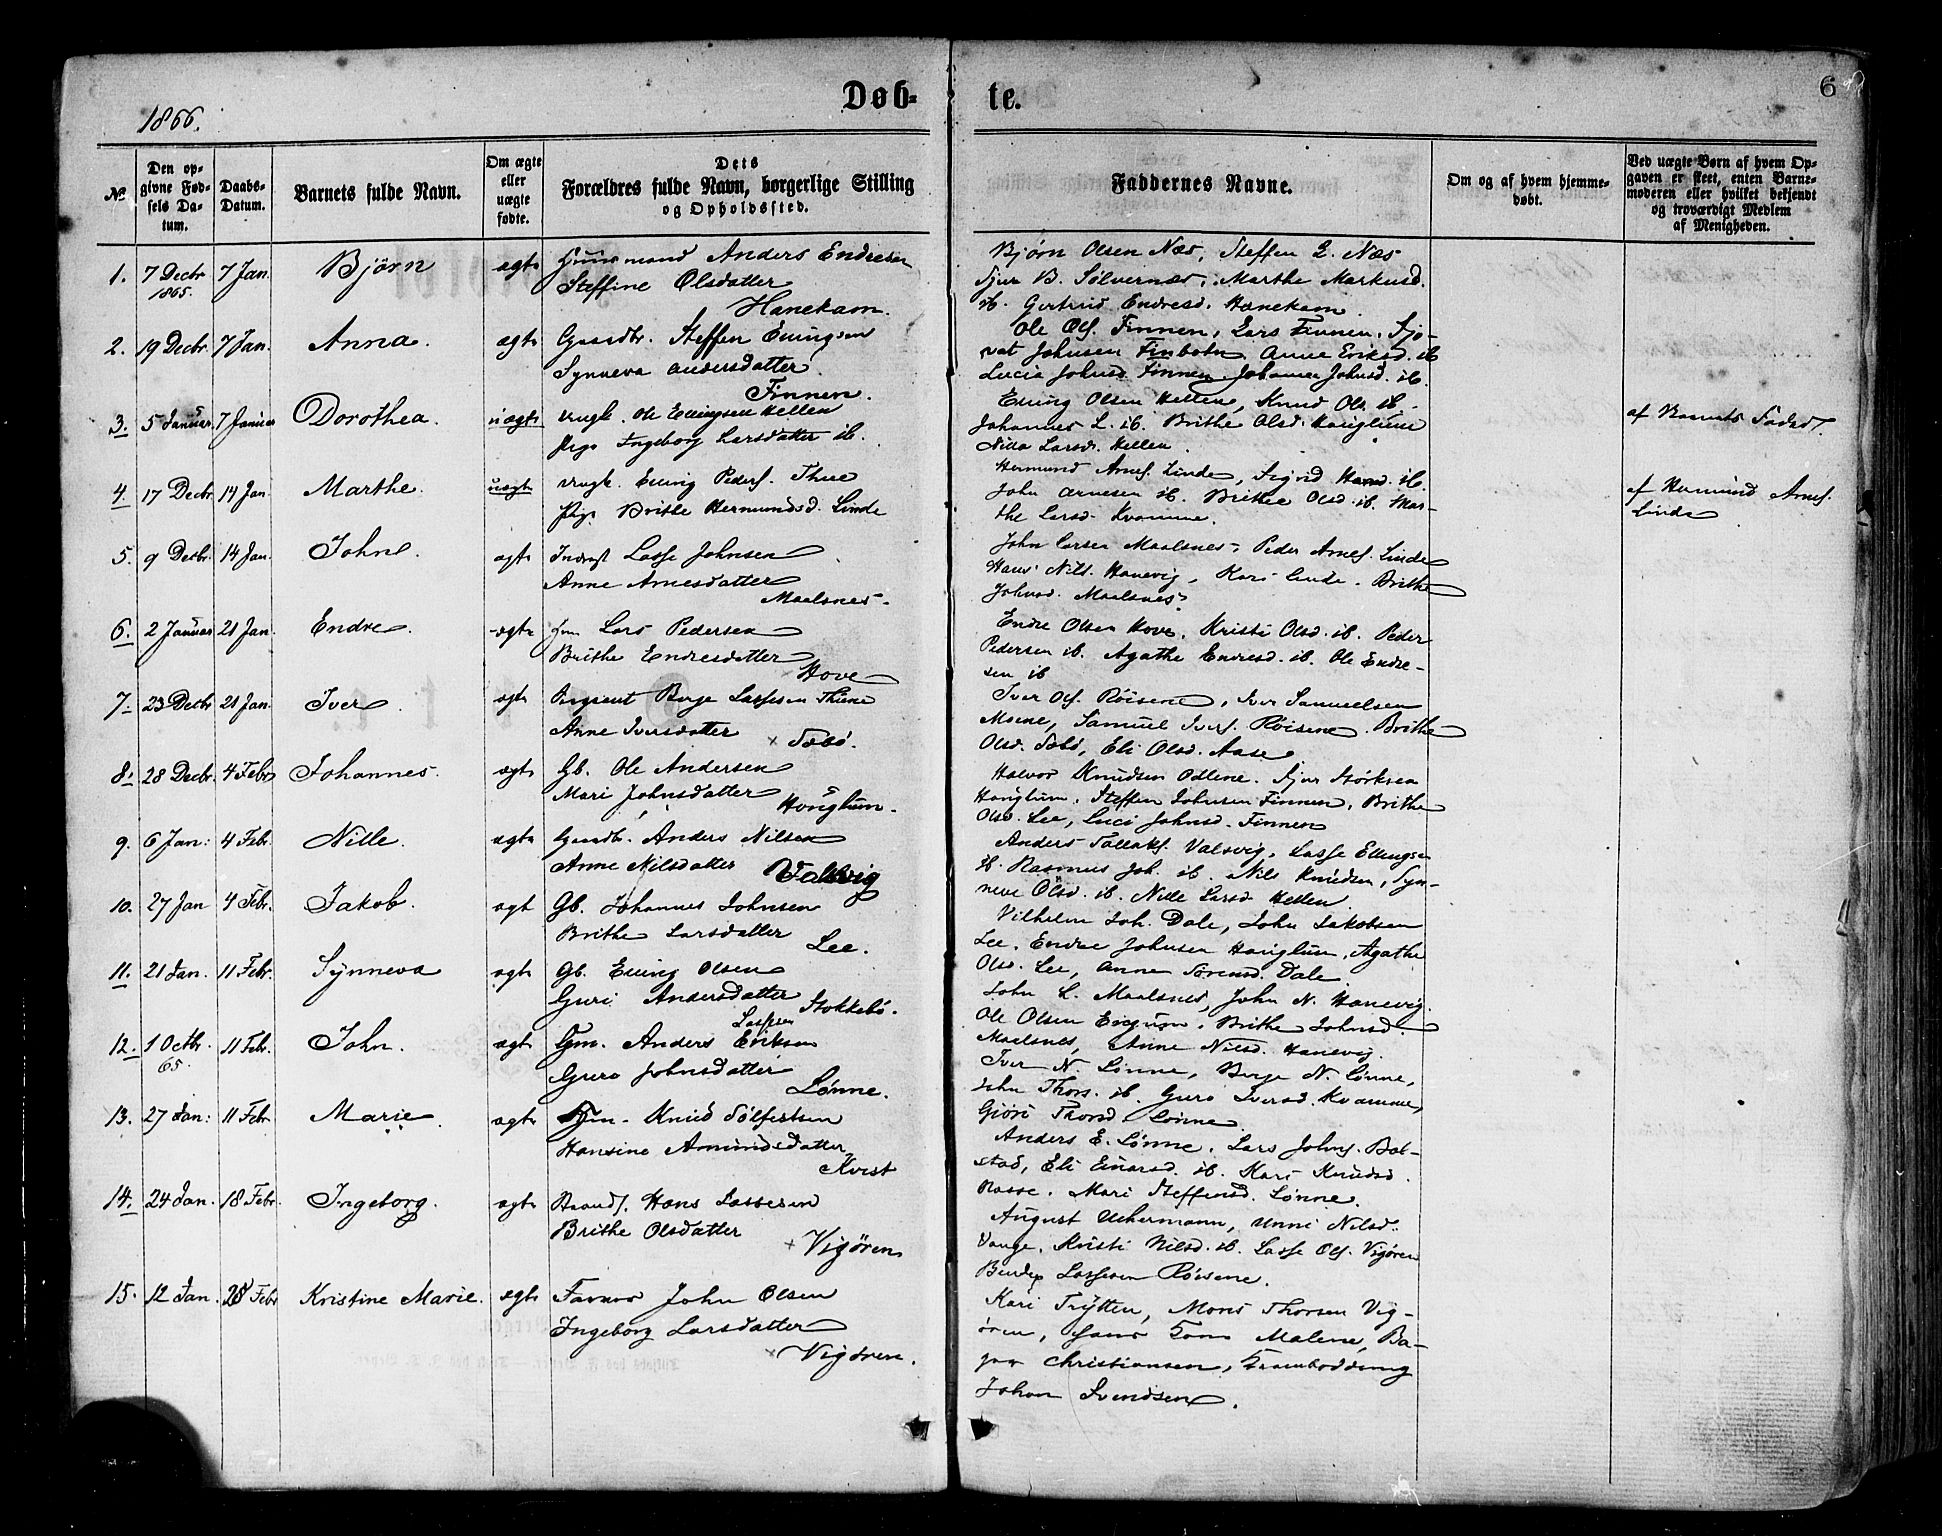 1866.
Døb- te.
6
No
Den opgivne Fødsels Datum.
Daabs-Datum.
Barnets fulde Navn.
Om ægte eller uægte fødte.
Dets Forældres fulde Navn, borgerlige Stilling og Opholdssted.
Faddernes Navne.
Om og af hvem hjemmedøbt.
Ved uægte Børn af hvem Opgaven er skeet, enten Barnemoderen eller hvilket bekjendt og troværdigt Medlem af Menigheden.
1. 7 Decbr 1865. 7 Jan. Bjørn ægte Huusmand Anders Endresen
Steffine Olsdatter
Hanekam.
Bjørn Olsen Næs, Steffen E. Næs
Sjur B. Sølvernæs, Marthe Markusd.
ib. Gertrud Endresd. Hanekam.
2. 19 Decbr. 7 Jan. Anna. ægte Gaardbr. Steffen Ellingsen
Synneva Andersdatter
Finnen.
Ole Ols. Finnen, Lars Finnen, Sjo-
vat Johnsen Finbotn, Anne Eriksd. ib
Lucia Johnsd. Finnen, Johanna Johnsd. ib.
3. 5 Januar. 7 Januar Dorothea. uægte Ungk. Ole Ellingsen Hellen
Pige Ingeborg Larsdatter ib.
Elling Olsen Hellen, Knud Ols. ib.
Johannes L. ib. Brithe Olsd. Hauglum
Nilla Larsd. Hellen.
af Barnets Fader.
4. 17 Decbr 14 Jan. Marthe. uægte Ungk. Elling Peders. Thue
Pige Brithe Hermundsd. Linde
Hermund Arnes. Linde, Sigrid Hansd. ib.
John Arnesen ib. Brithe Olsd. ib. Mar-
the Larsd. Kvamme.
af Hermund Arnes.
Linde
5. 9 Decbr. 14 Jan. John. ægte Inderst Lasse Johnsen
Anne Arnesdatter
Maalsnes.
John Larsen Maalsnes, Peder Arnes. Linde
Hans Nils. Hanevig, Kari Linde. Brithe
Johnsd. Maalsnes.
6. 2 Januar 21 Jan. Endre. ægte Hm. Lars Pedersen
Brithe Endresdatter
Hove
Endre Olsen Hove, Kristi Olsd. ib. Peder
Pedersen ib. Agathe Endresd. ib. Ole Endre-
sen ib
7. 23 Decbr 21 Jan. Iver. ægte Sergeant Børge Lassesen Thune
Anne Iversdatter × Sæbø.
Iver Ols. Røisene, Iver Samuelsen
Moene, Samuel Ivers. Røisene. Brithe
Olsd. Sæbø, Eli Olsd. Aase
8. 28 Decbr. 4 Febr. Johannes. ægte Gb. Ole Andersen
Mari Johnsdatter
Hauglum.
Halvor Knudsen Odlene. Sjur Størksen
Hauglum. Steffen Johnsen Finnen, Brithe
Olsd. Lee, Luci Johnsd. Finnen
9. 6 Jan: 4 Febr. Nille. ægte Gaardb. Anders Nilsen
Anne Nilsdatter Valsvig
Anders Tollaks. Valsvig, Lasse Ellingsen
ib. Rasmus Joh. ib. Nils Knudsen, Syn-
neve Olsd. ib. Nille Larsd. Hellen.
10. 27 Jan 4 Febr. Jakob. ægt Gb. Johannes Johnsen
Brithe Larsdatter
Lee.
Vilhelm Joh. Dale, John Jakobsen
Lee, Endre Johnsen Hauglum, Agathe
Olsd. Lee, Anne Sørensd. Dale
11. 21 Jan. 11 Febr. Synneva ægte Gb. Elling Olsen
Guri Andersdatter Stokkebø.
John L. Maalsnes, John N. Hanevig.
Ole Olsen Engum, Brithe Johnsd.
Maalsnes, Anne Nilsd. Hanevig.
12. 1 Octbr. 65. 11 Febr. John. ægte Hm. Anders Lassesen Eriksen
Guro Johnsdatter
Lønne.
Iver N. Lønne, Børge N. Lønne,
John Thors. ib. Guro Iversd. Kvamme,
Gjøri Thorsd. Lønne.
13. 27 Jan: 11 Febr Marie ægte Hm. Knud Sølfestsen
Hansine Amundsdatter
Kvist
Anders E. Lønne, Lars Johns. Bol-
stad, Eli Einarsd. ib. Kari Knudsd.
Rasse. Mari Steffensd. Lønne.
14. 24 Jan. 18 Febr. Ingeborg. ægte Strands. Hans Lassesen
Brithe Olsdatter
× Vigøren
August Uchermann, Unni Nilsd.
Vange, Kristi Nilsd. ib. Lasse Ols. Vigøren
Bendix Lassesen Røisene.
15. 12 Jan. 28 Febr Kristine Marie. ægte Farver John Olsen
Ingeborg Larsdatter
× Vigøren.
Kari Trytten, Mons Thorsen Vig-
øren, Malene, Ba-
ger Christiansen,
Johan Svendsen.